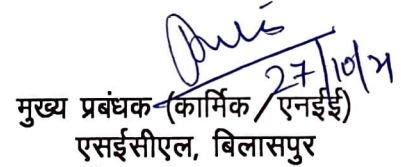 27/10/21
मुख्य प्रबंधक (कार्मिक/एनईई)
एसईसीएल, बिलासपुर